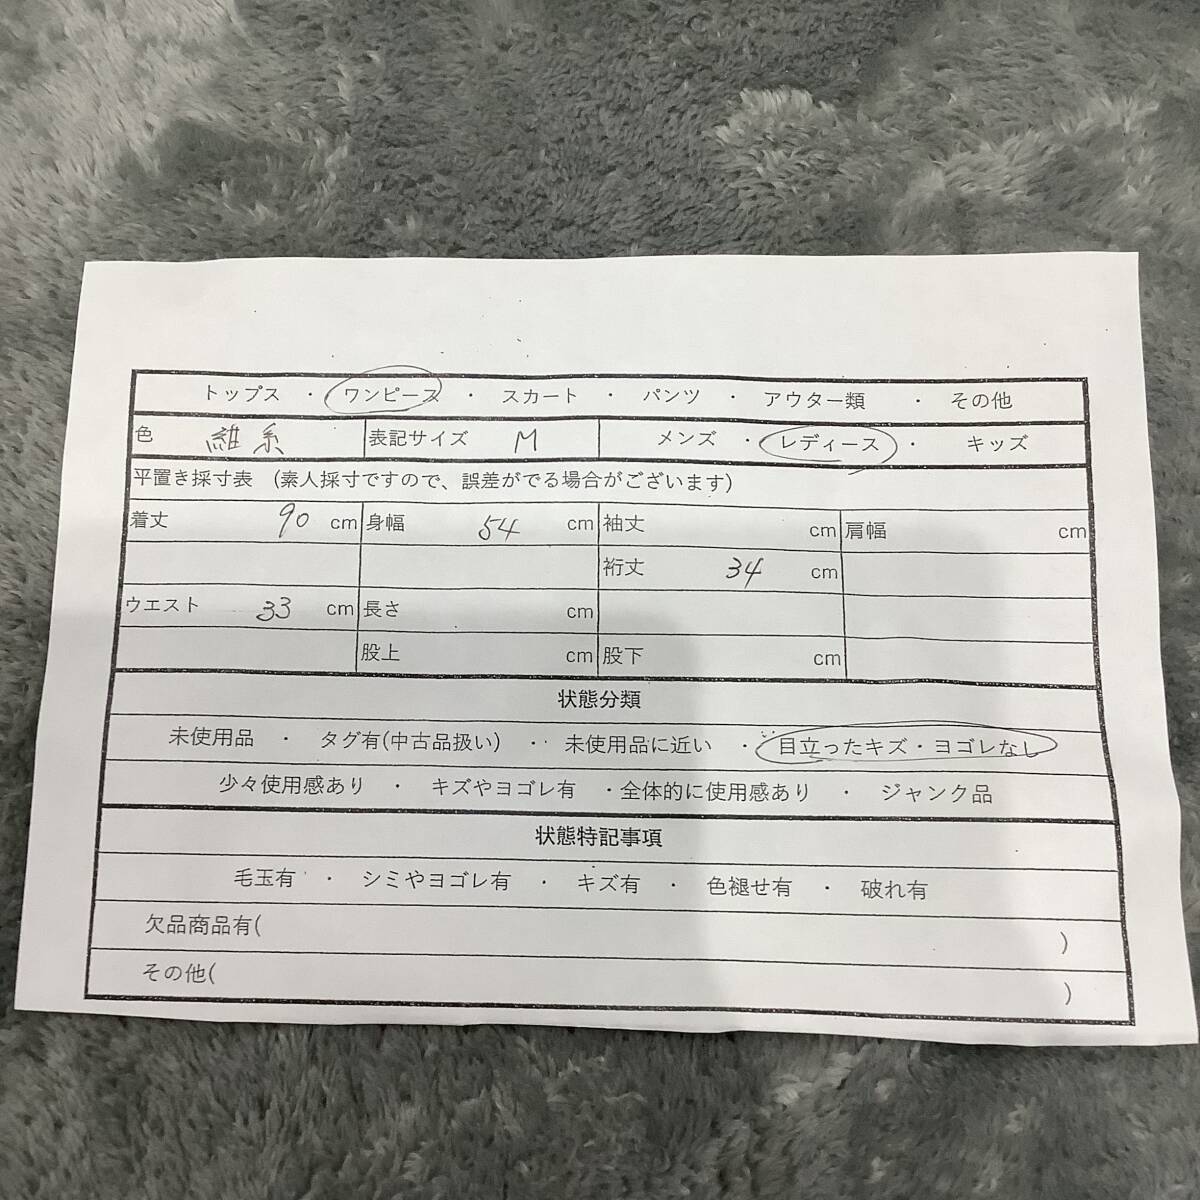 トップス ・ ワンピース ・ スカート ・ パンツ ・ アウター類 ・ その他
色 紺系 表記サイズ M メンズ ・ レディース ・ キッズ
平置き採寸表 (素人採寸ですので、誤差がでる場合がございます)
着丈 90 cm 身幅 54 cm 袖丈 cm 肩幅 cm
裄丈 34 cm
ウエスト 33 cm 長さ cm
股上 cm 股下 cm
状態分類
未使用品 ・ タグ有(中古品扱い) ・ 未使用品に近い ・ 目立ったキズ・ヨゴレなし
少々使用感あり ・ キズやヨゴレ有 ・全体的に使用感あり ・ ジャンク品
状態特記事項
毛玉有 ・ シミやヨゴレ有 ・ キズ有 ・ 色褪せ有 ・ 破れ有
欠品商品有( )
その他( )